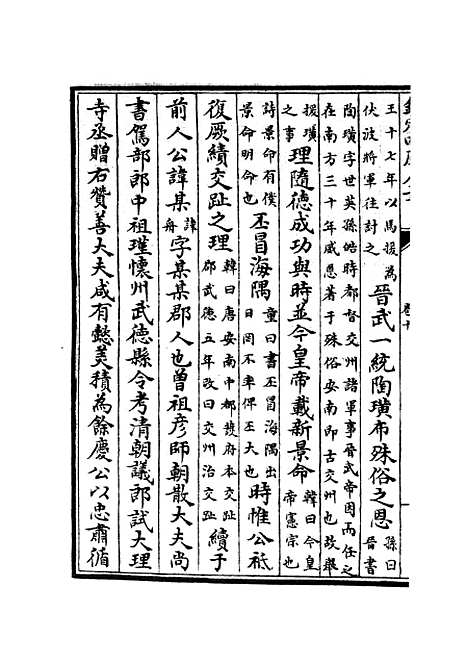 王十七年以馬援為
伏波將軍往討之
晉武一統陶璜布殊俗之恩
孫曰
晉書
陶璜字世英孫皓時都督交州諸軍事晉武帝因而任之
在南方三十年威恩著于殊俗安南即古交州也故舉
援璜
之事
理隨德成功與時並今皇帝載新景命
韓曰今皇
帝憲宗也
詩景命有僕
景命明命也
丕冒海隅
童曰書丕冒海隅出
日罔不率俾丕大也
時惟公祗
復厥績交趾之理
韓曰唐安南中都護府本交趾
郡武德五年改曰交州治交趾
續于
前人公諱某
諱
舟
字某某郡人也曾祖彦師朝散大夫尚
書駕部郎中祖瑾懷州武德縣令考清朝議郎試大理
寺丞贈右贊善大夫咸有懿美積為餘慶公以忠肅循